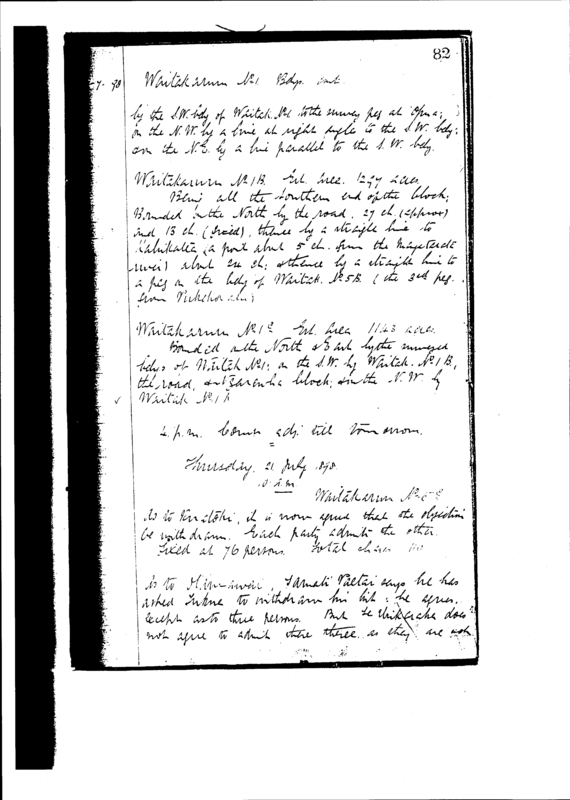 82
-7-98 Waitakaruru No.1 Bdys. cont.
by the S.W. bdy of Waitak. No.1 to the survey peg at Opua;
on the N.W. by a line at right angle to the S.W. bdy;
and on the N.E. by a line parallel to the S.W. bdy.
Waitakaruru No.1B. Est. area. 1297 acres
Being all the Southern end of the block;
Bounded on the North by the road. 27 ch. (approx)
and 13 ch. thence by a straight line to
a point about 5 ch. from the
river) about 24 ch; & thence by a straight line to
a peg on the bdy of Waitak. No.5B. (the 3rd peg.
from
Waitakaruru No.1C Est. area 1143 acres.
Bounded on the North & East by the surveyed
bdys of Waitak No.1; on the S.W. by Waitak. No.1B,
the road, & block; & on the N.W. by
Waitak No.1A
4. p.m. Court adj. till tomorrow.
Thursday. 21 July 1898.
10 a.m
Waitakaruru No.5
As to it is now agreed that the objection
be withdrawn. Each party admits the other.
Fixed at 76 persons. Total shares
As to says he has
asked to withdraw his list: he agrees,
except as to three persons. But Te does
not agree to admit these three as they are not